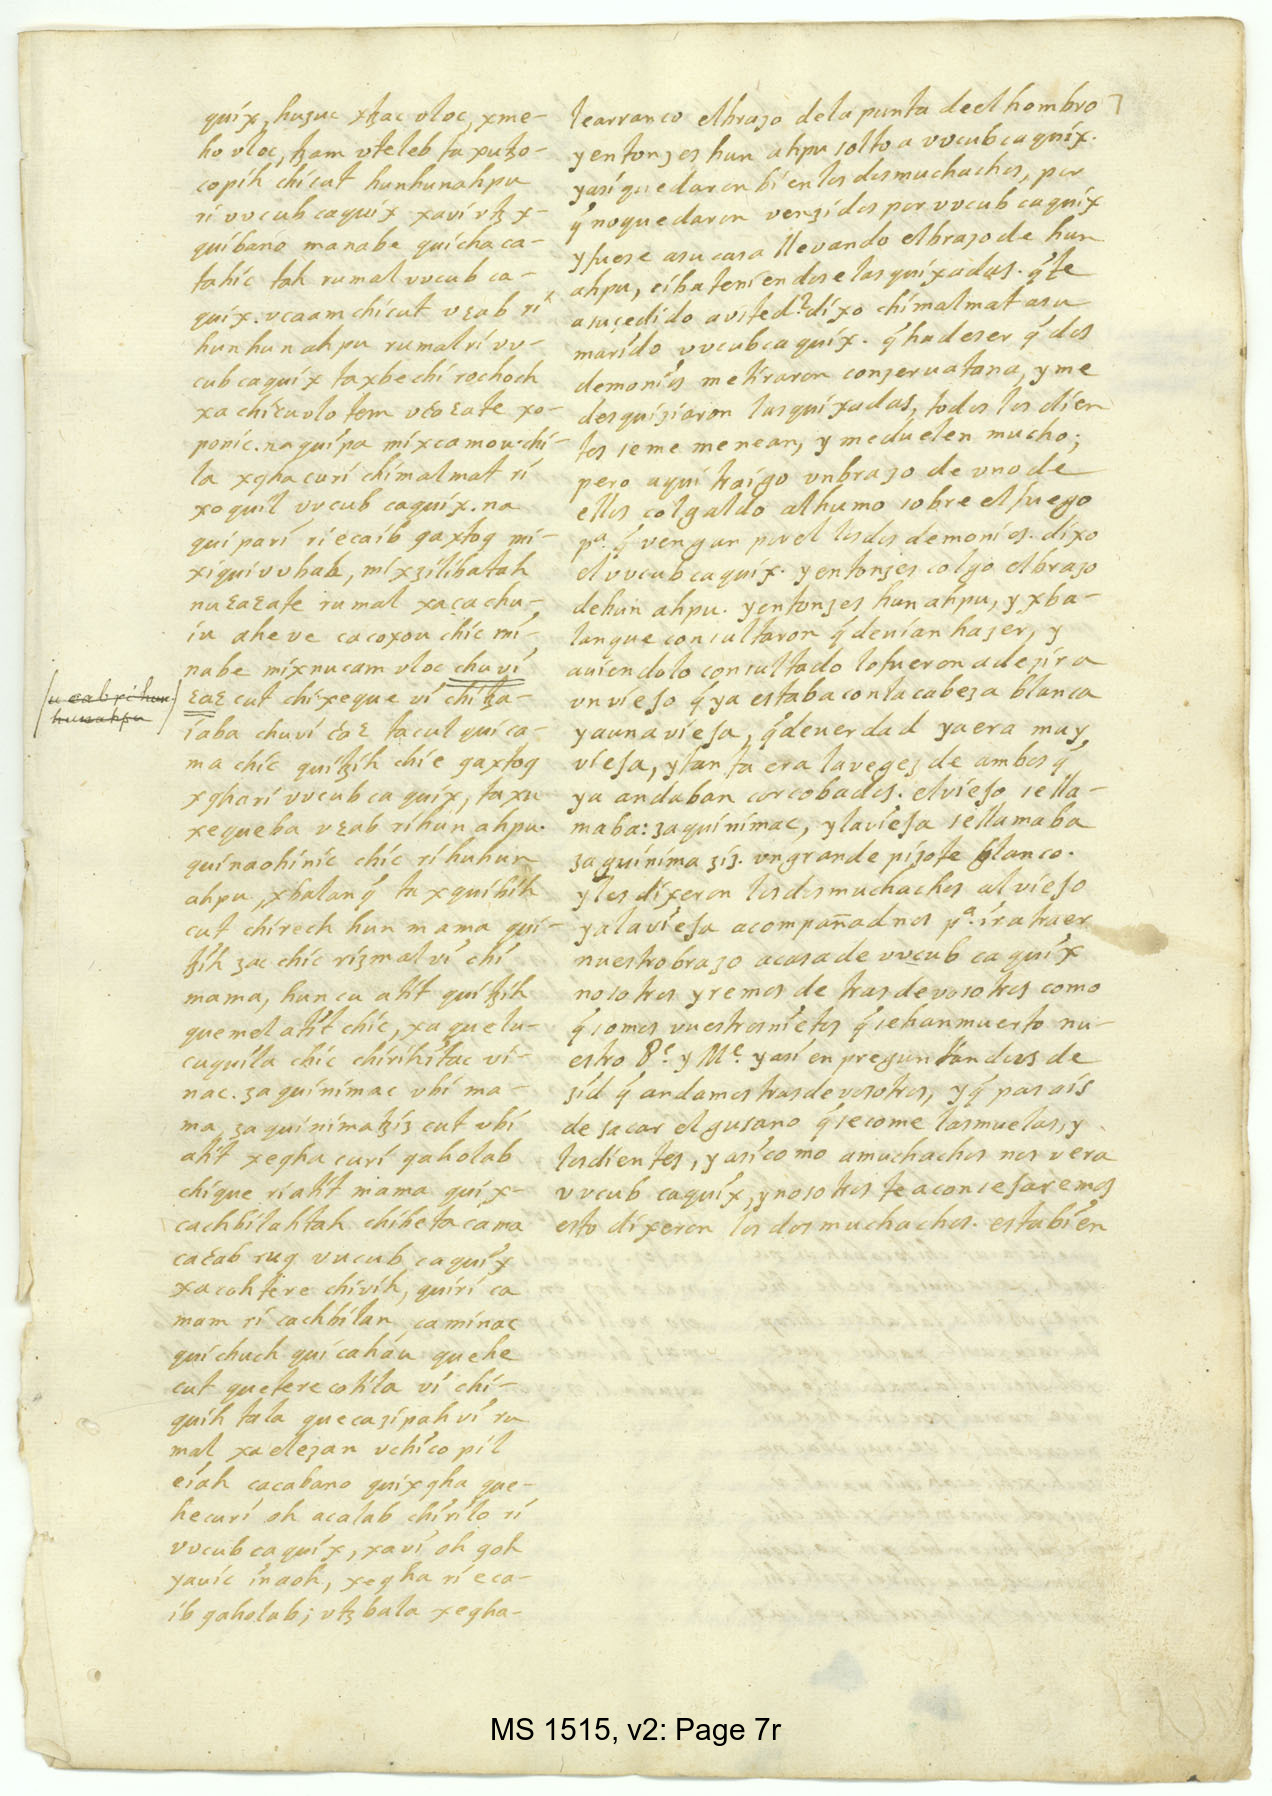 quix, huzuc xꜩac vloc, xme-
ho vloc, ꜩam vteleb ta xutzo-
copih chicut hunhunahpu
ri vvcub caquix xavi vtz x-
quibano manabe quichaca-
tahic tah rumal vvcub ca-
quix. vcaam chicut vεab ri
hunhun ahpu rumal ri vv-
cub caquix ta xbe chi rochoch
xa chiεuvlo tem vꜫoεate xo-
ponic. naquipa mixcamou. chi-
la xqha curi chimalmat ri
xoquil vvcub caquix. na
quipari ri ecaib qaxtoq mi-
xiqui vvbah, mixzilibatah
nuεaεate rumal xaca chu-
iu aheve cacoxou chic mi-
nabe mixnucam vloc chu vi
εaε cut chixeque vi chiꜩa-
iaba chuvi ꜫaε ta cul quica-
ma chic quitzih chie qaxtoq
xqha ri vvcub caquix, ta xu
xequeba vεab ri hun ahpu.
quinaohinic chic ri huhun
ahpu, xbalanq̃ ta xquibih
cut chirech hun mama qui-
tzih zac chic rizmal vi chi
mama, hun cu atit quitzih
quemel atit chic, xa quelu-
cuquila chic chirihitac vi-
nac. zaquinimac vbi ma-
ma, zaquinimatziz cut vbi
atit xeqha curi qaholab
chique ri atit mama quix-
cachbilahtah chibe ta cama
caꜫab ruq vucub caquix
xacohtere chivih, quiri ca
mam ri cachbilan caminac
quichuch quicahau quehe
cut quetere cotila vi chi-
quih tala quecazipah vi ru
mal xa elezan vchicopil
eiah cacabano quixqha que-
hecuri oh acalab chirilo ri
vvcub caquix, xavi oh qoh
yauic inaoh, xeqha ri eca-
ib qaholab; vtz bala xeqha-
(u εab ri hun
hunahpu)
7
learranco elbrazo dela punta deel hombro
y entonzes hun ahpu solto a vvcub caquix.
y asi quedaron bien los dos muchachos, por
q̃ no quedaron venzidos por vvcub caquix
y fuese asu casa llevando elbrazo de hun
ahpu, eiba teniendose las quixadas. q̃ te
asuçedido avsted? dixo chimalmat asu
marido vvcub caquix. q̃ ha de ser q̃ dos
demonios metiraron conzeruatana, y me
desquiziaron las quixadas, todos los dien
tes se me menean, y me duelen mucho;
pero aqui traigo vn brazo de vno de
ellos colgaldo alhumo sobre el fuego
pa. q̃ vengan por el los dos demonios. dixo
el vvcub caquix. y entonzes colgo elbrazo
dehun ahpu. y entonzes hun ahpu, y xba-
lanque consultaron q̃ devian hazer, y
auiendolo consultado lo fueron a dezir a
vn viejo q̃ ya estaba con la cabeza blanca
y a una vieja, q̃ de verdad ya era muy
vieja, y tanta era la vegez de ambos q̃
ya andaban corcobados. el viejo se lla-
maba: zaquinimac, y la vieja se llamaba
zaquinima ziz. vn grande pizote blanco.
y les dixeron los dos muchachos al viejo
y ala vieja acompañadnos pa. ir a traer
nuestro brazo a casa de vvcub caquix
nosotros yremos de tras de vosotros como
q̃ somos vuestros nietos q̃ se han muerto nu-
estro Pe. y Me. y asi en preguntandoos de
zid q̃ andamos tras de vosotros, y q̃ pasais
de sacar el gusano q̃ se come las muelas, y
los dientes, y asi como a muchachos nos vera
vvcub caquix, y nosotros te aconsejaremos
esto dixeron los dos muchachos. esta bien
MS 1515, v2: Page 7r